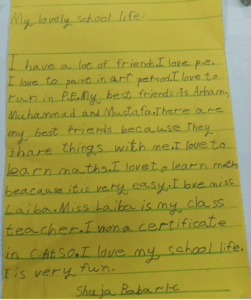 My lovely school life.
I have a lot of friends.I love p.e.
I love to paint in art period.I love to
run in P.E.My best friends is Arham,
Muhammad and Mustafa.There are
my best friends because They
share things with me.I love to
learn maths.I love to learn math
beacause it is very easy.I love miss
Laiba.Miss Laiba is my class
teacher.I won a certificate
in CATSO.I love my school life.
I is very fun.
Shuja